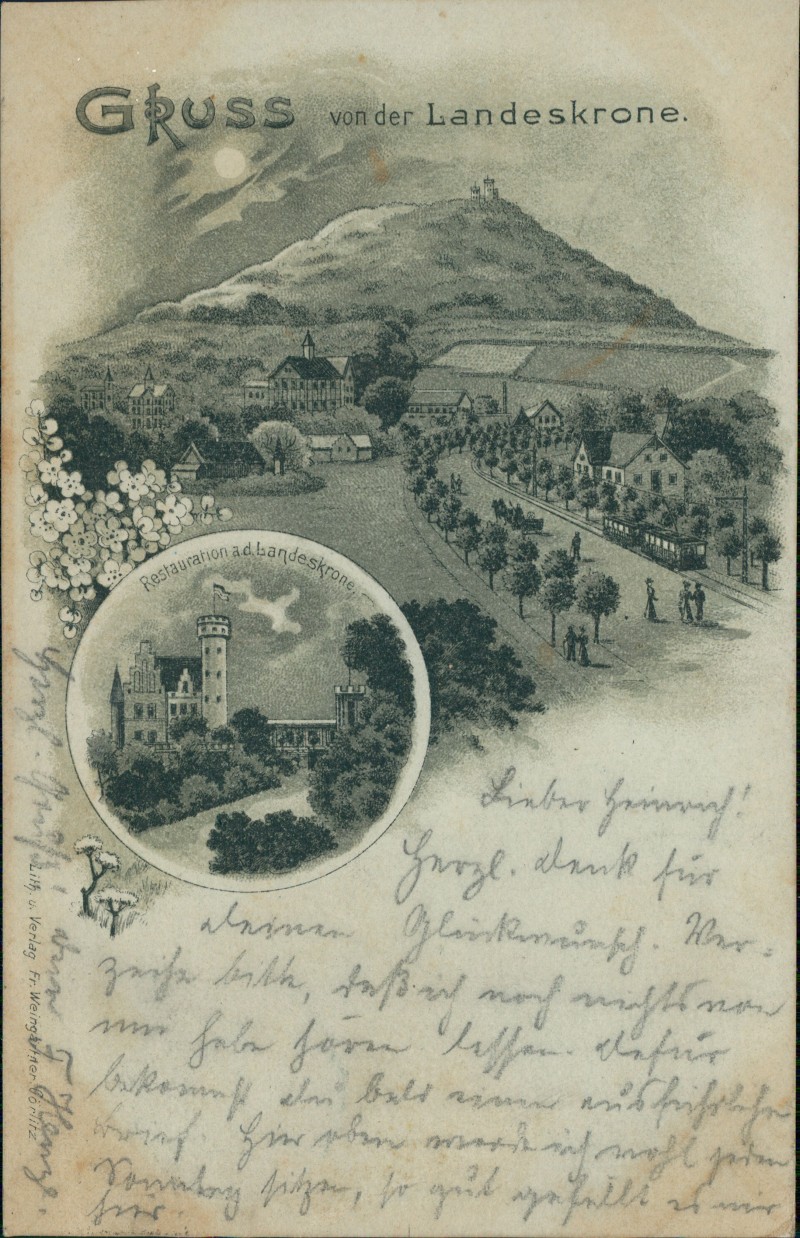 Gruss von der Landeskrone.
Restauration a.d. Landeskrone.
Lieber Heinrich!
Herzl. Dank für
deinen Glückwunsch. Ver-
zeihe bitte, daß ich noch nichts von
mir habe hören lassen. Dafür
bekommst du bald einen ausführlichen
Brief. Hier oben werde ich wohl jeden
Sonntag sitzen, so gut gefällt es mir
hier.
Herzl. Grüße, dein
Lith. u. Verlag Fr. Weingärtner, Görlitz